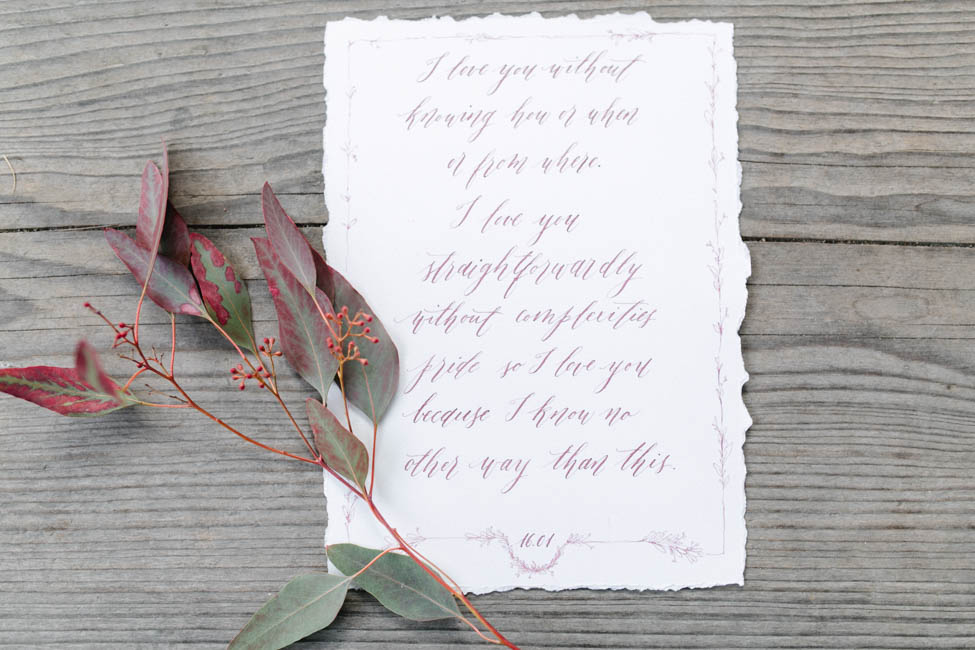 I love you without
knowing how or when
or from where.
I love you
straightforwardly
without complexities
pride so I love you
because I know no
other way than this.
16.01